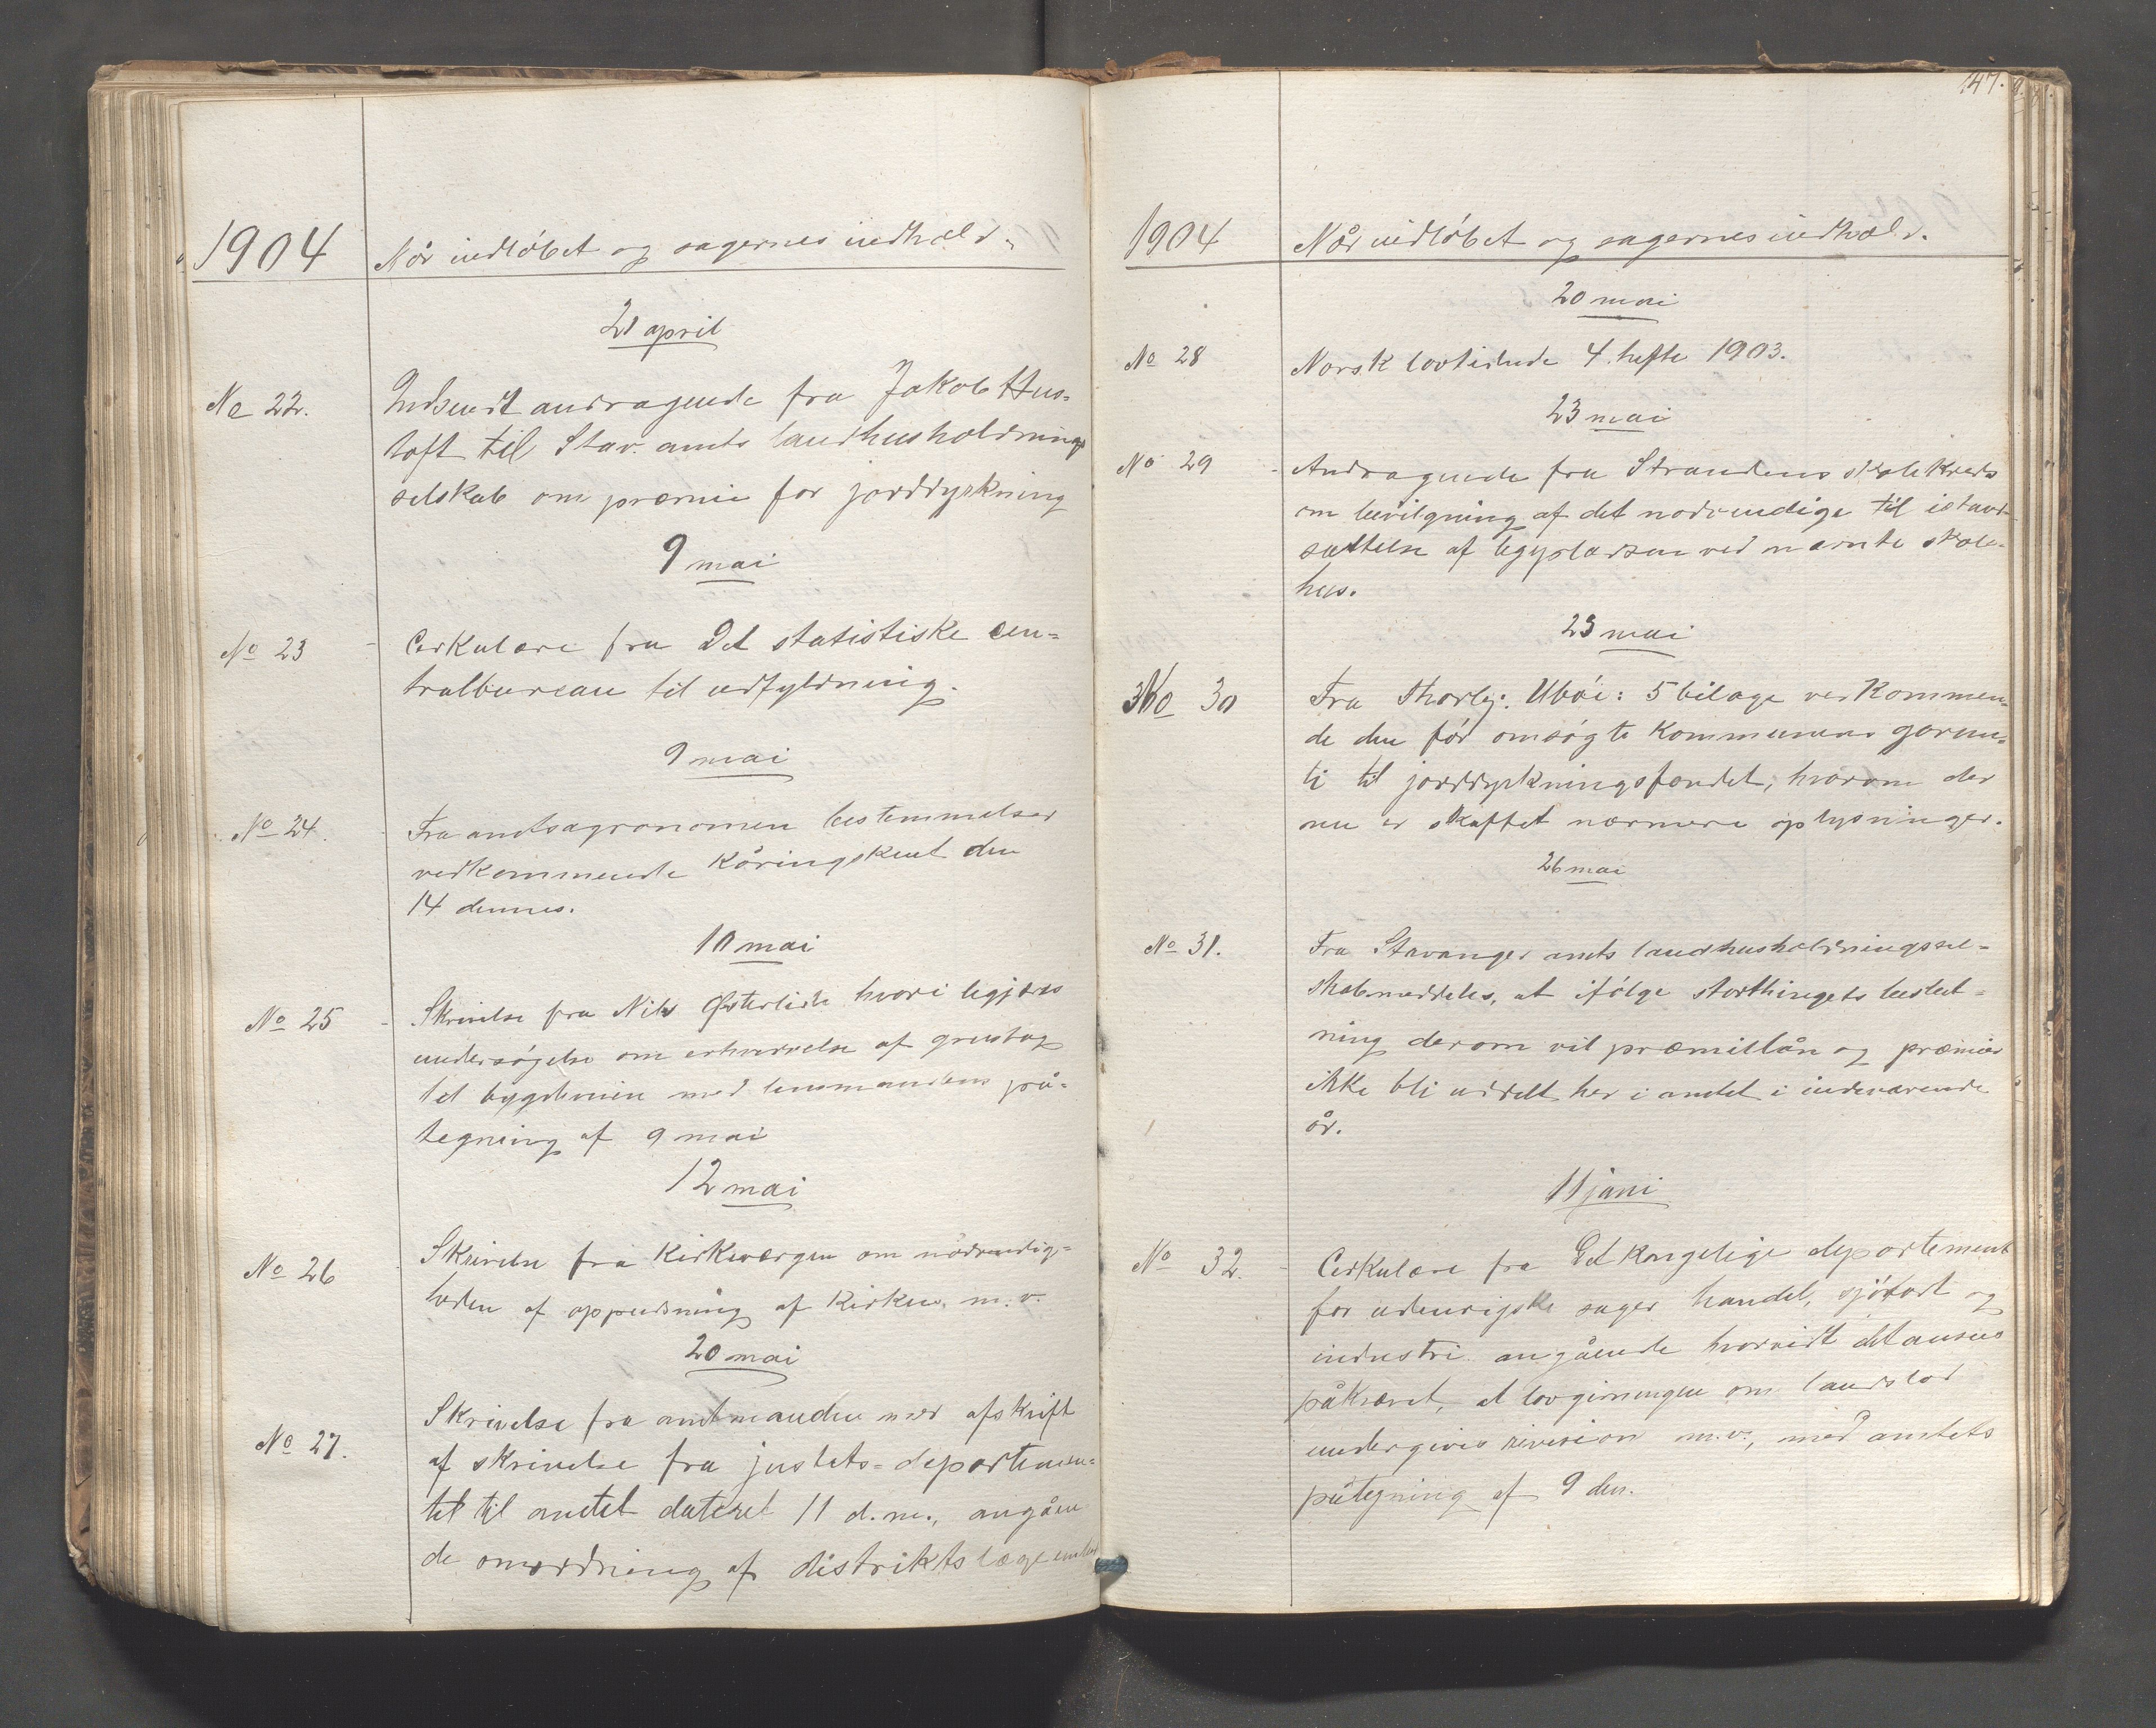 1904
Når indløbet og sagernes indhold.
21 april
No 22.
Indsendt andragende fra Jakob Hus=
toft til Stav. amts landhusholdnings
selskab om præmie for jorddyrkning
9 mai
No 23
Cerkulære fra Det statistiske cen=
tralbureau til udfyldning.
9 mai
No 24.
Fra amtsagronomen bestemmelser
vedkommende Kåringskuet den
14 dennes.
10 mai
No 25
Skrivelse fra Nils Østerlide hvori begjæres
undersøgelse om erhvervelse af grustag
til bygdeveien med lensmandens på=
tegning af 9 mai
12 mai
No 26
Skrivelse fra Kirkeværgen om nødvendig=
heden af oppudsning af Kirken m.v.
20 mai
No 27.
Skrivelse fra amtmanden med afskrift
af skrivelse fra justits=departemen=
tet til amtet dateret 11 d.m., angåen
de omordning af distriktslægeembed
147.
1904
Når indløbet og sagernes indhold.
20 mai
No 28
Norsk lovtidende 4. hefte 1903.
23 mai
No 29
Andragende fra Strandens skolekreds
om bevilgning af det nødvendige til istand-
sættelse af tegplassen ved nævnte skole-
hus.
23 mai
No 30
Fra Thorbj. Ubøe: 5 bilage vedkommen=
de den før omsøgte Kommunens garan=
ti til jorddyrkningsfondet, hvorom der
nu er skaffet nærmere oplysninger.
26 mai
No 31.
Fra Stavanger amts landhusholdningssel=
skab meddeles, at ifølge storthingets beslut=
ning derom vil præmielån og præmier
ikke bli uddelt her i amtet i indeværende
år.
11 juni
No 32.
Cerkulære fra Det Kongelige departement
for udenrigske sager handel, sjøfart og
industri angående hvorvidt det ansees
påkrævet, at lovgivningen om landslod
undergives revision m.v., med amtets
påtegning af 9 den.